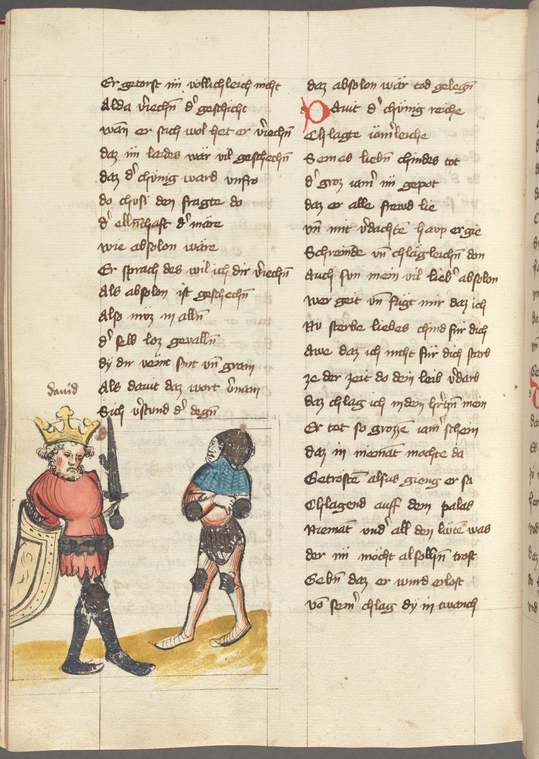 Er getorst im völlichleich nicht
Alda v̄iechn̄ d' geschicht
wan̄ er sich wol het er v̄iechn̄
daz im laides wär vil geschechn̄
daz d' chünig ward vnfro
do chusi den fragte do
d' elln̄schaft d' märe
wie absolon wäre
Er sprach des wil ich dir v̄iechn̄
Als absolon ist geschechn̄
Also müz in alln̄
d' selb loz gevalln̄
dy dir veint sint vn̄ gram
Als dauit daz wort v̄nam
Sich v̄stund d' degn̄
dauid
daz absolon wär tod gelegn̄
Dauit d' chünig reiche
Chlagte iam̄leiche
Sein es liebn̄ chindes tot
d' groz iam' im gepot
daz er alle frewd lie
vn̄ mit v̄dachte haup er gie
Schreinde vn̄ chlägleichn̄ don
Auch sun mein vil lieb' absolon
wer geit vn̄ fügt mir daz ich
Nv sterbe liebes chind für dich
Awe daz ich nicht für dich starb
ze der zeit do dein leib v̄darb
daz chlag ich in dem h'tzn̄ mein
Er tet so groze iam' schein
daz in niemāt mochte da
Getröste alsus gieng er sa
Chlagend auff dem palas
Niemāt vnd' all den läute was
der im möcht alsolhn̄ trost
Gebn̄ daz er wurd erlost
vō sein' chlag dy in twanch